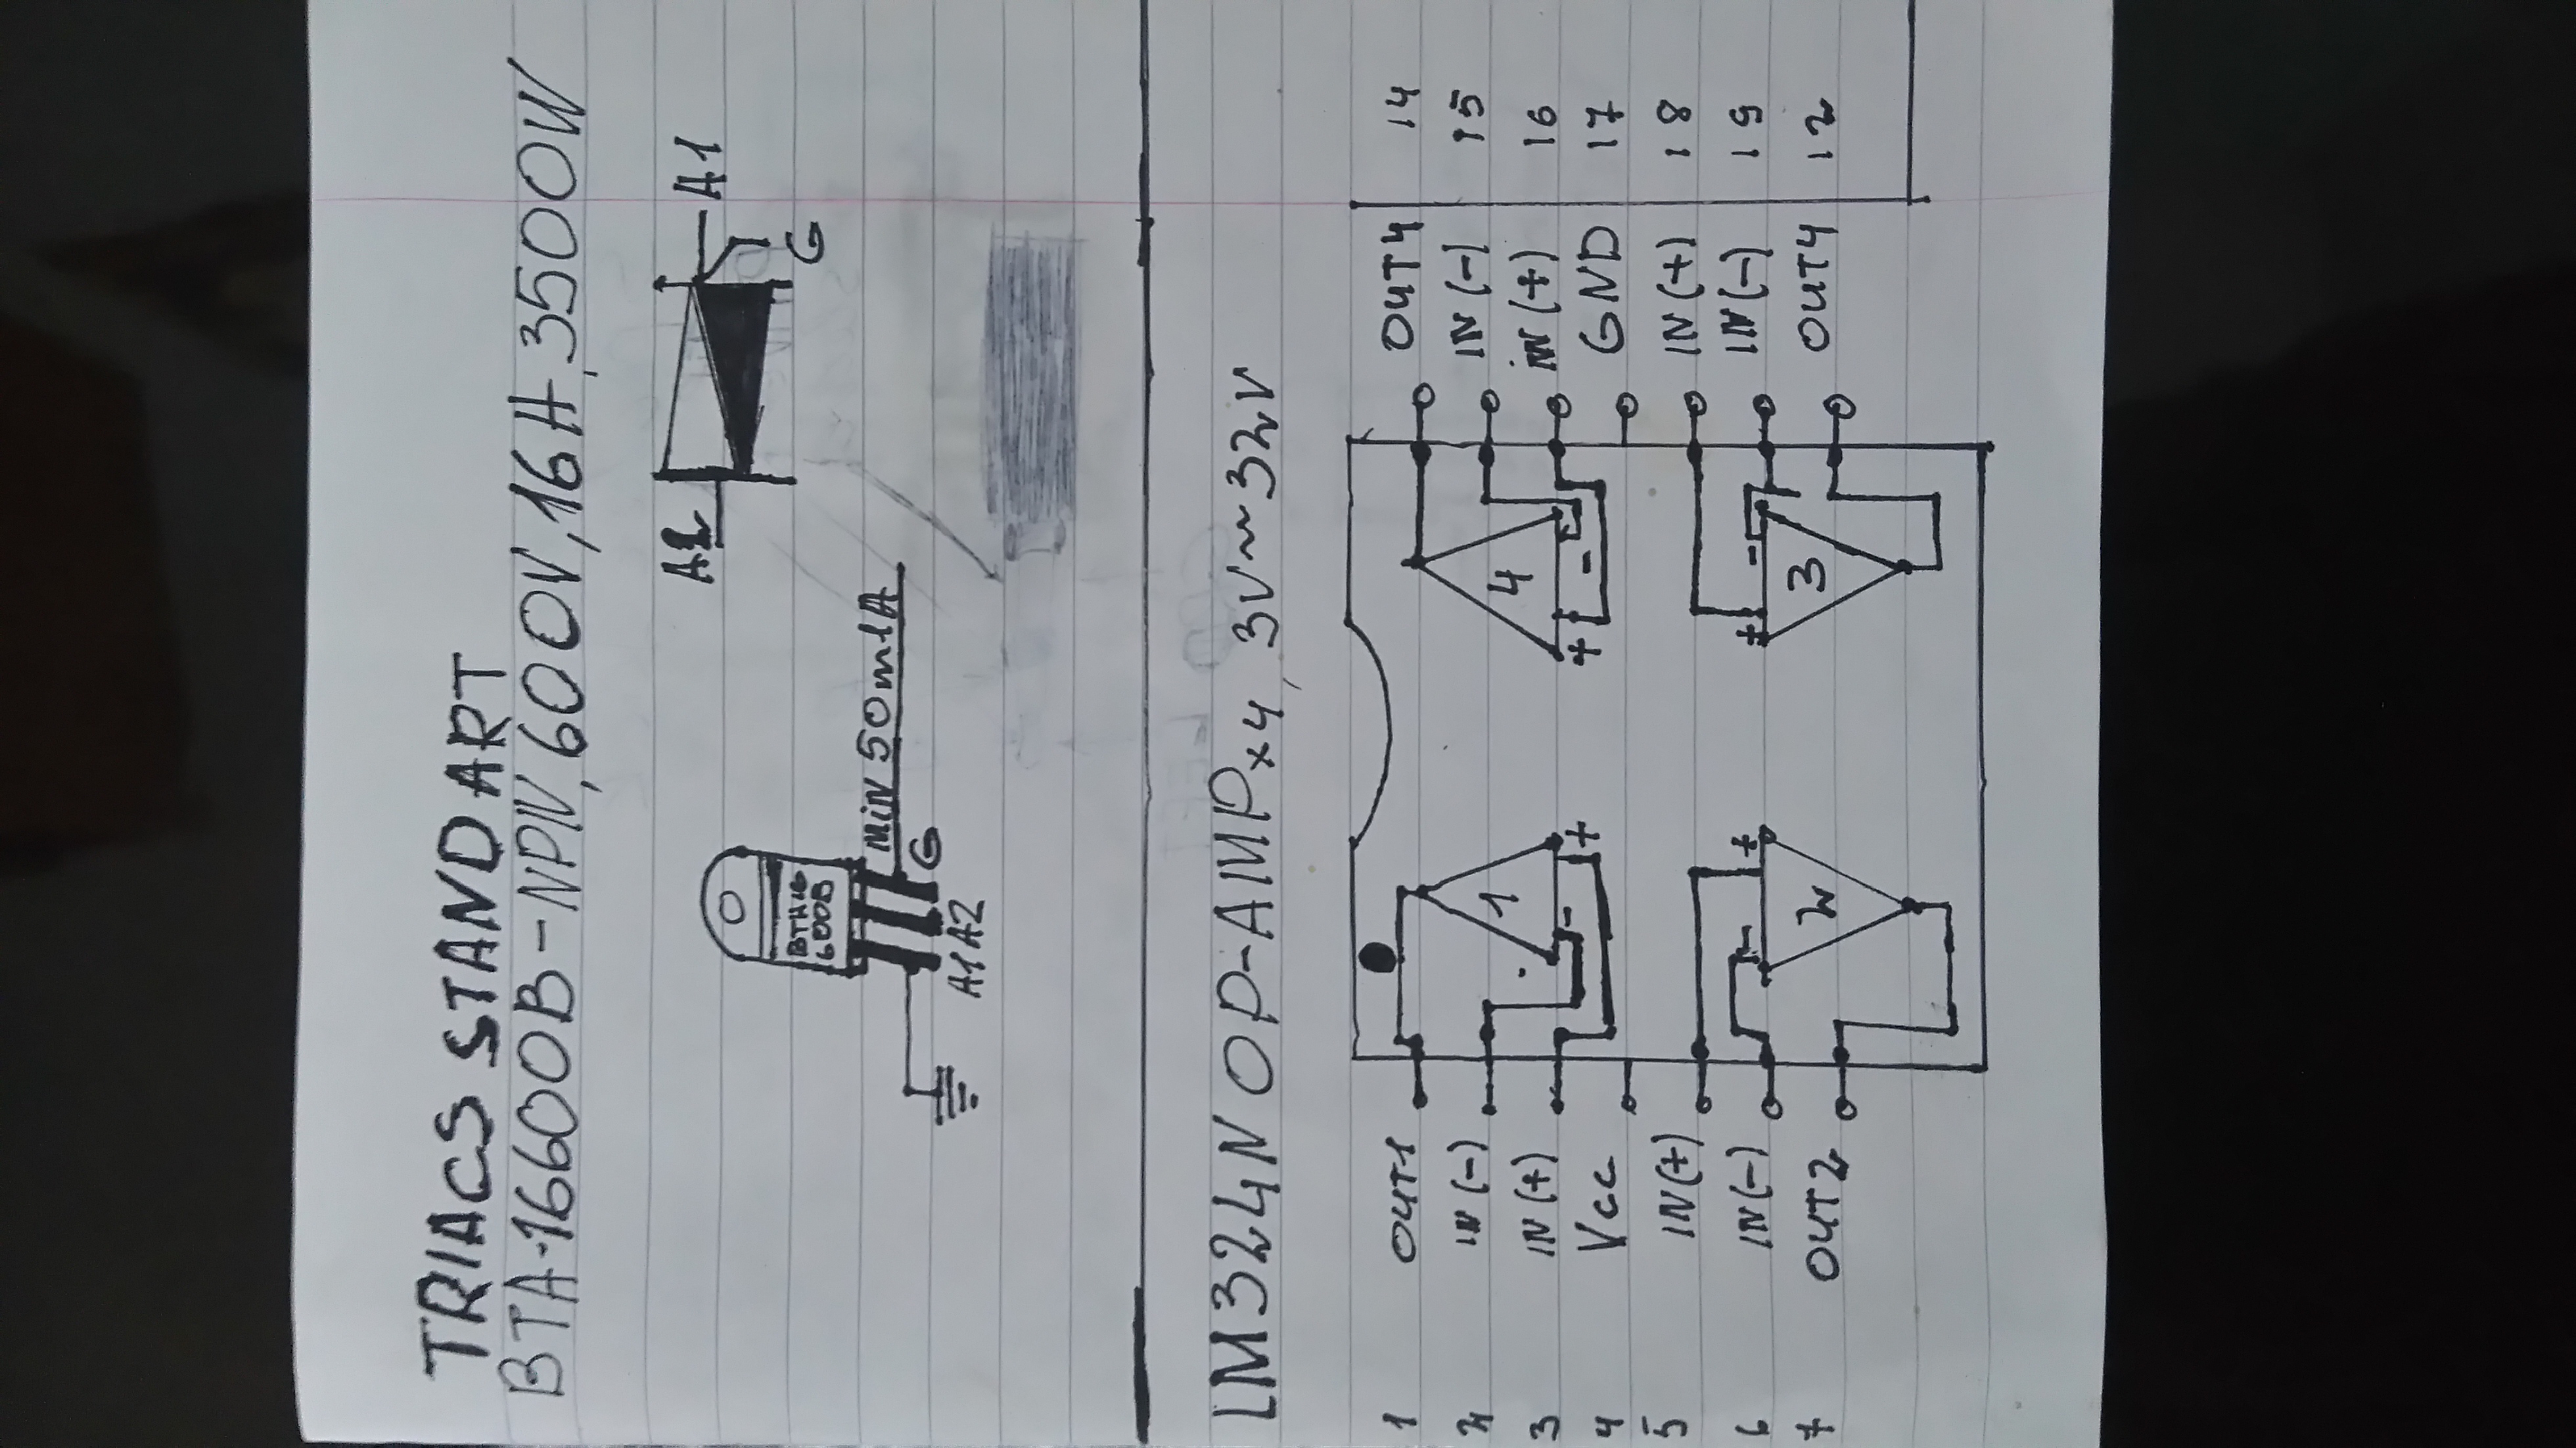 TRIACS STANDART
BTA-16600B-NPN,600V,16A,3500W
BTA16-
600B
A1 A2
G
MiN 50mA
A2
A1
G
LM324N OP-AMPx4, 3V~32V
1 OUT1
2 IN(-)
3 IN(+)
4 Vcc
5 IN(+)
6 IN(-)
7 OUT2
1
-
+
2
-
+
4
+
-
3
+
-
OUT4 14
IN(-) 15
iN(+) 16
GND 17
IN(+) 18
IN(-) 19
OUT4 12